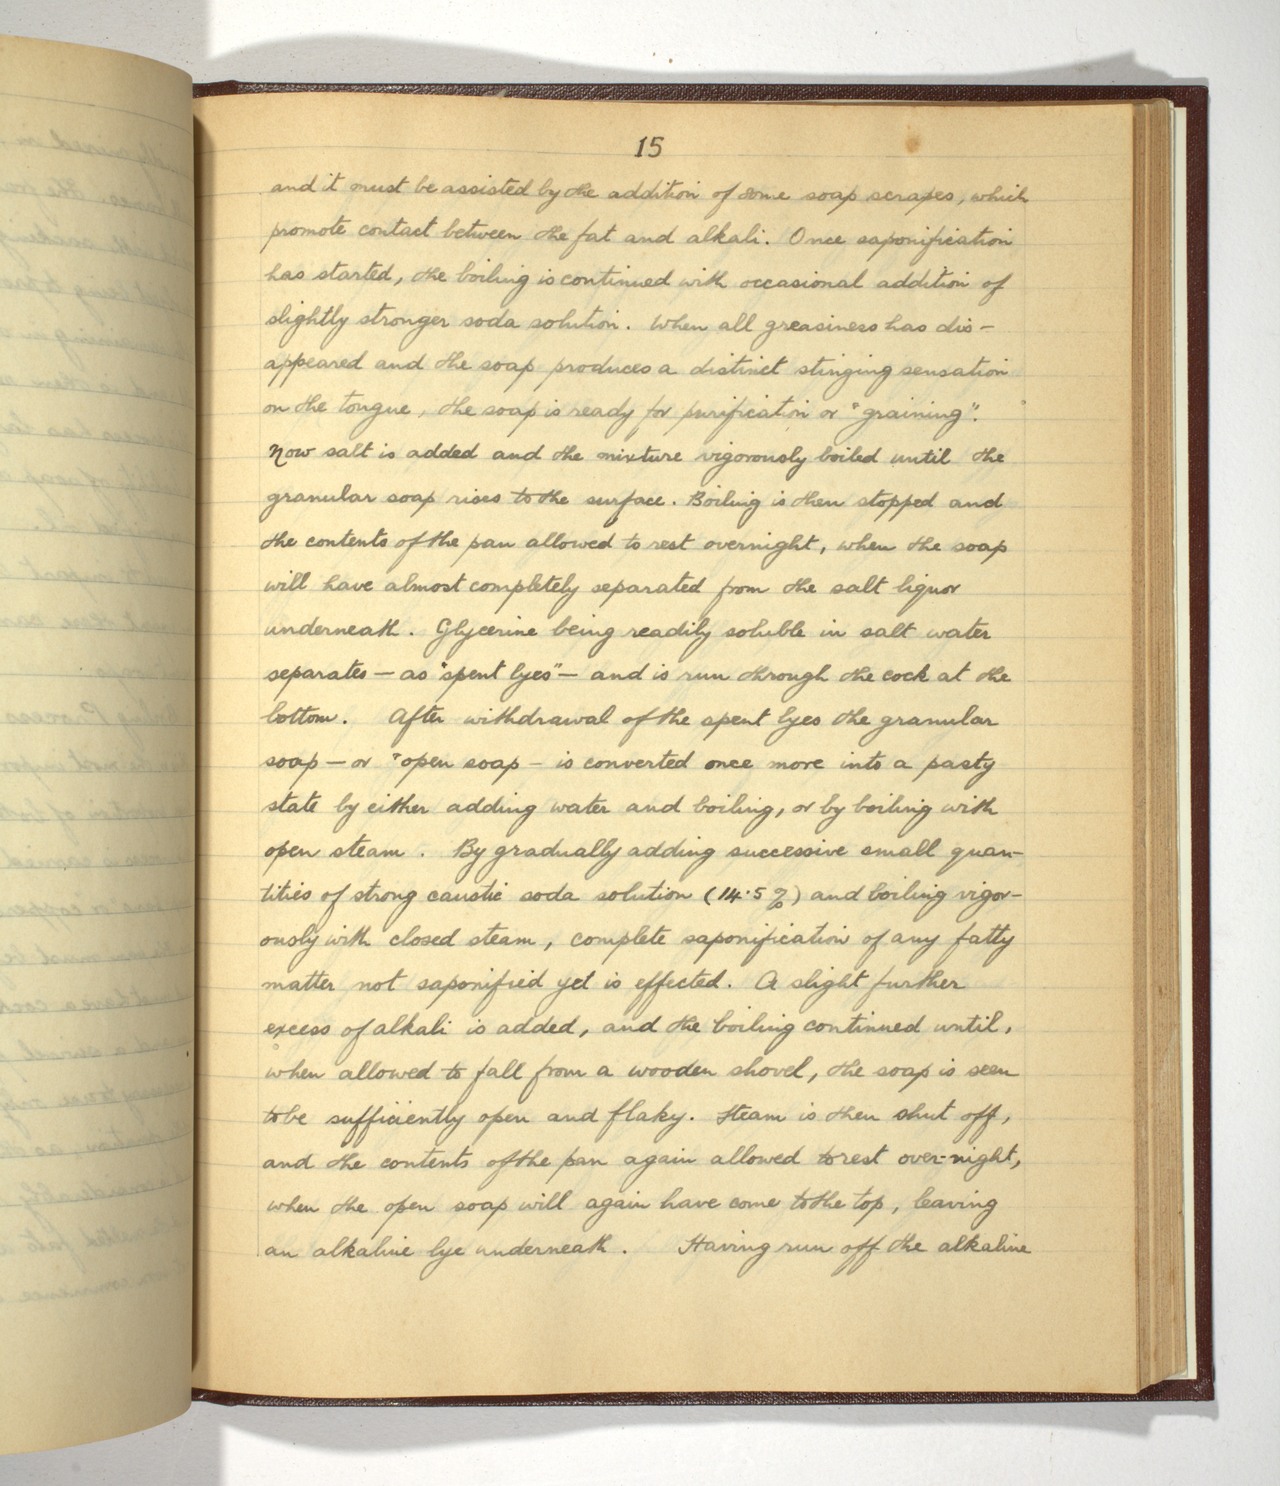 15
and it must be assisted by the addition of some soap scrapes, which
promote contact between the fat and alkali. Once saponification
has started, the boiling is continued with occasional addition of
slightly stronger soda solution. When all greasiness has dis-
appeared and the soap produces a distinct stinging sensation
on the tongue, the soap is ready for purification or "graining".
Now salt is added and the mixture vigorously boiled until the
granular soap rises to the surface. Boiling is then stopped and
the contents of the pan allowed to rest overnight, when the soap
will have almost completely separated from the salt liquor
underneath. Glycerine being readily soluble in salt water
separates — as "spent lyes" — and is run through the cock at the
bottom. After withdrawal of the spent lyes the granular
soap — or "open soap — is converted once more into a pasty
state by either adding water and boiling, or by boiling with
open steam. By gradually adding successive small quan-
tities of strong caustic soda solution (14·5%) and boiling vigor-
ously with closed steam, complete saponification of any fatty
matter not saponified yet is effected. A slight further
excess of alkali is added, and the boiling continued until,
when allowed to fall from a wooden shovel, the soap is seen
to be sufficiently open and flaky. Steam is then shut off,
and the contents of the pan again allowed to rest over-night,
when the open soap will again have come to the top, leaving
an alkaline lye underneath. Having run off the alkaline